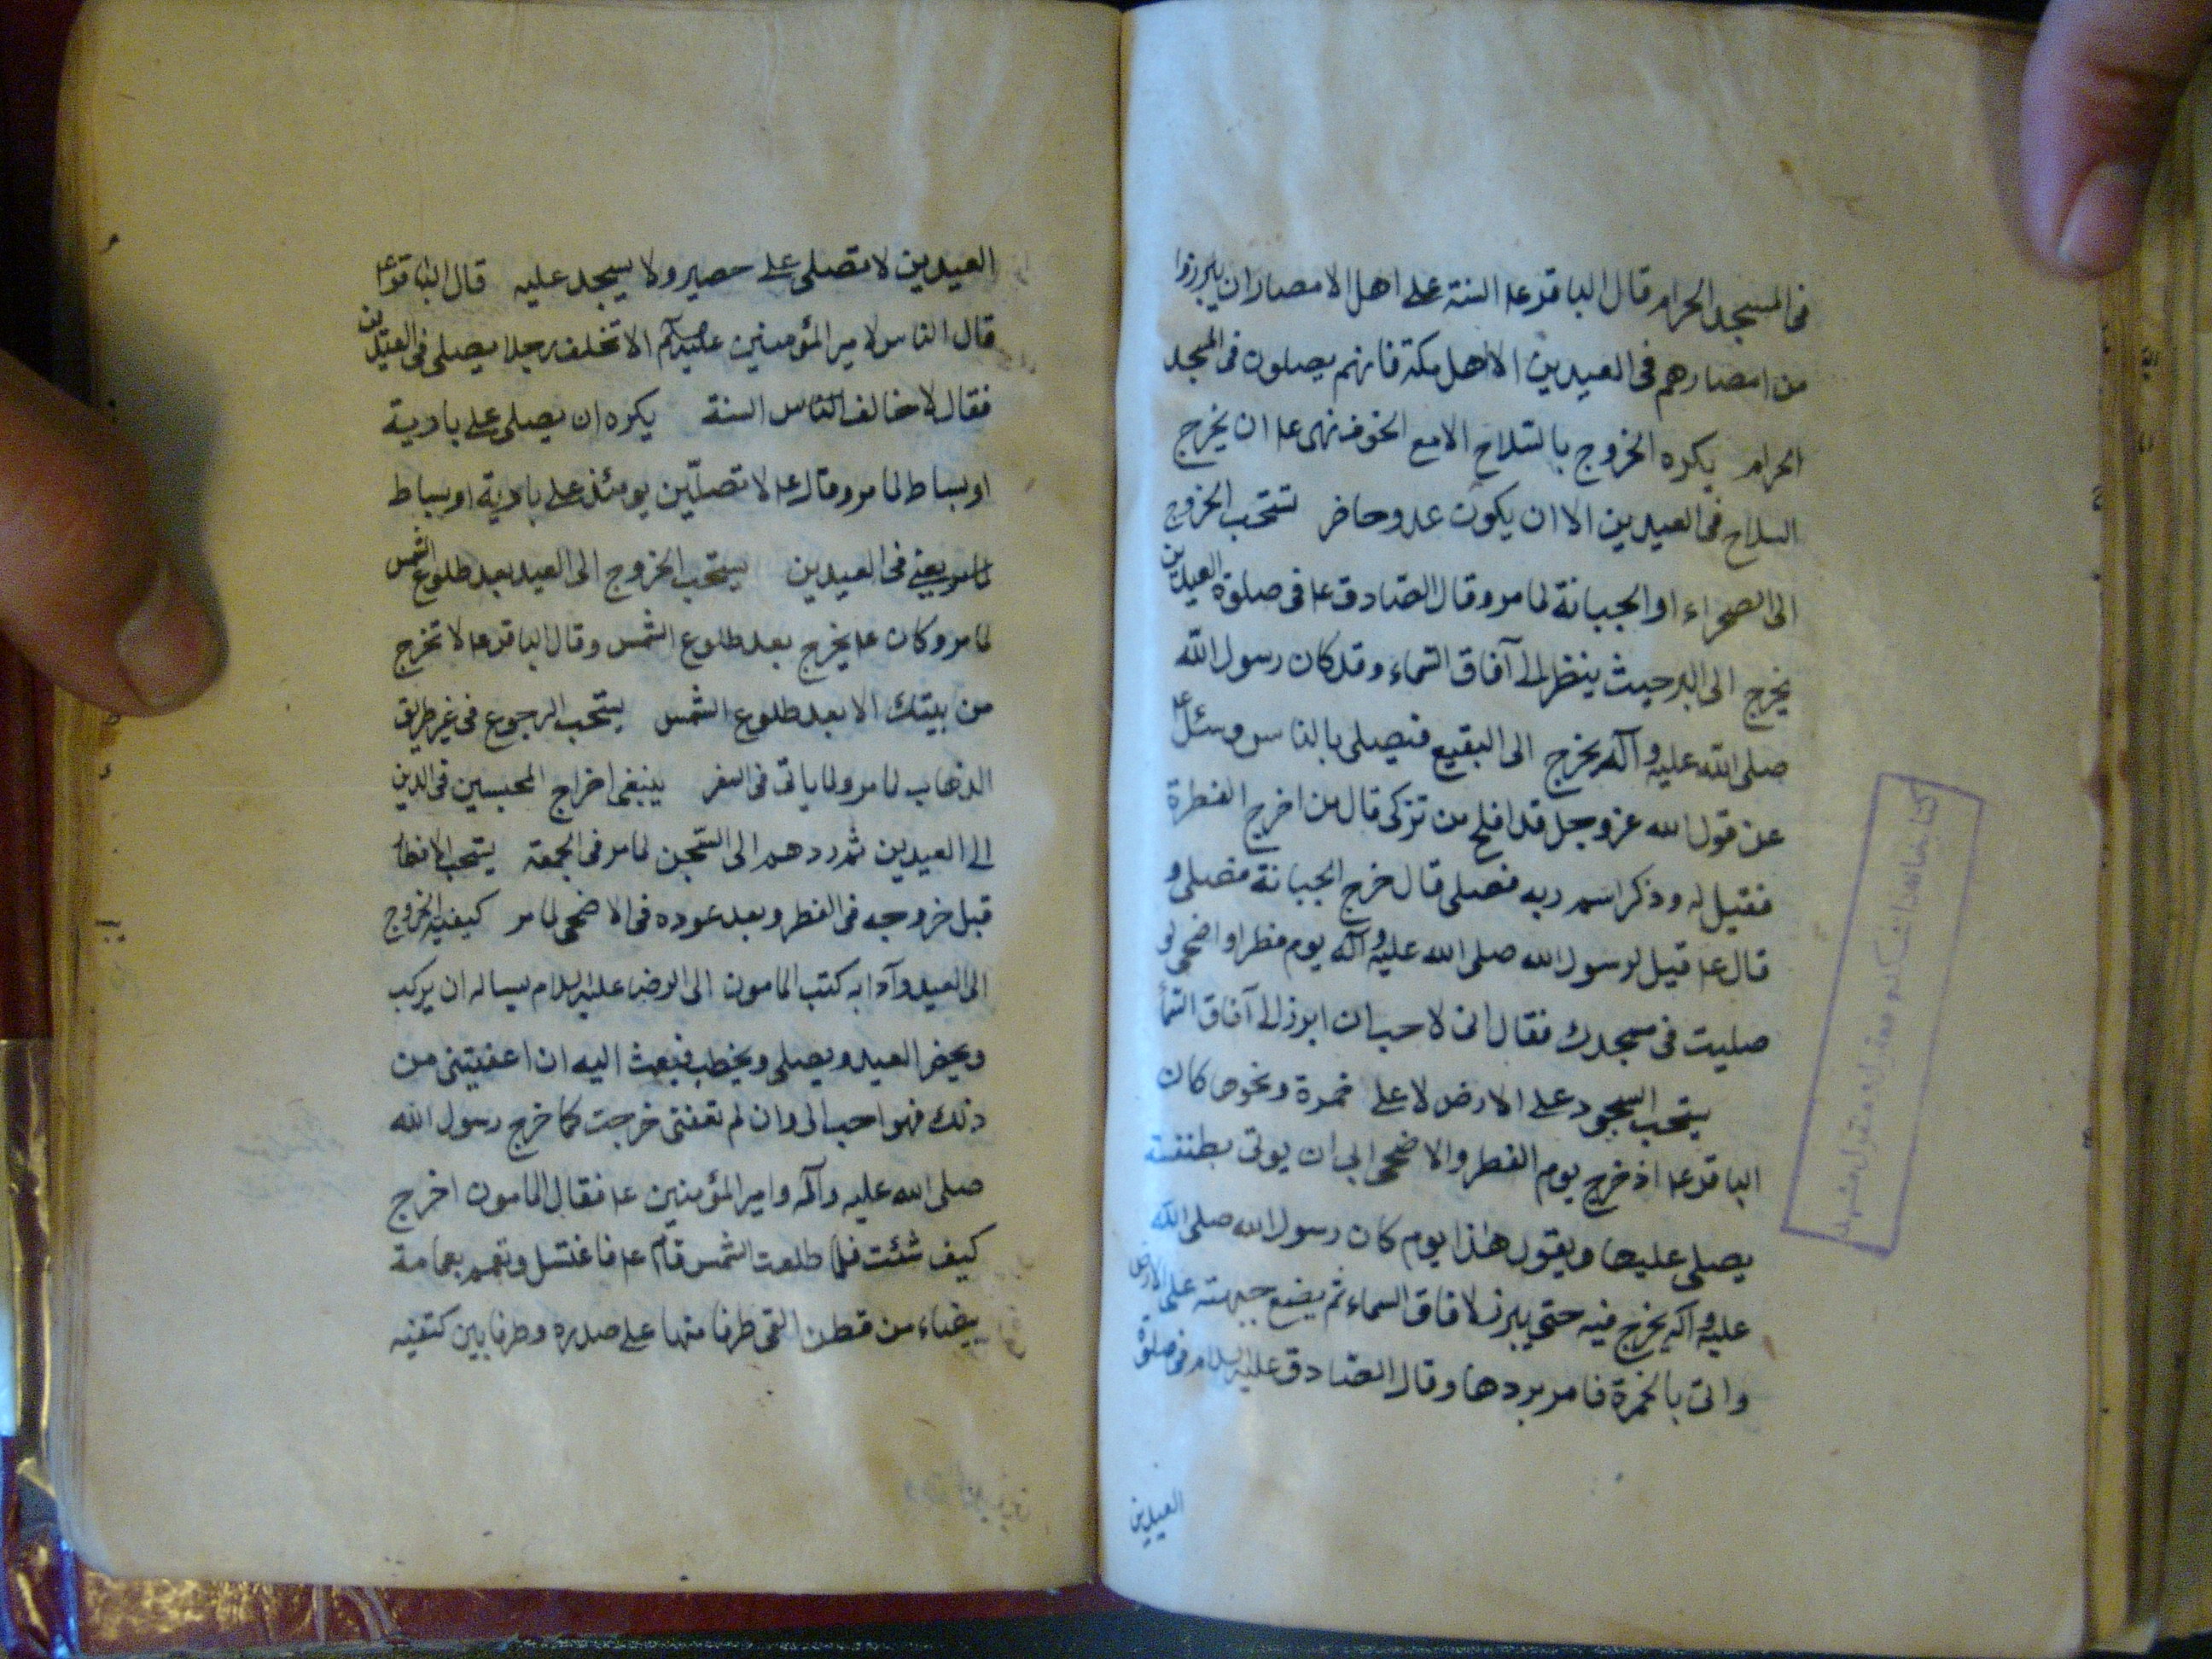 في المسجد الحرام قال الباقر ع السنة على اهل الامصار ان يبرزوا
من امصارهم في العيدين الا اهل مكة فانهم يصلون في المسجد
الحرام يكره الخروج بالسلاح الا مع الخوف نهى ع ان يخرج
السلاح في العيدين الا ان يكون عدو حاضر تستحب الخروج
الى الصحراء او الجبانة لما مر وقال الصادق ع في صلوة العيدين
يخرج الى البر حيث ينظر الى آفاق السماء وقد كان رسول الله
صلى الله عليه وآله يخرج الى البقيع فيصلى بالناس وسئل ع
عن قول الله عز وجل قد افلح من تزكى قال من اخرج الفطرة
فقيل له وذكر اسم ربه فصلى قال خرج الجبانة فصلى و
قال ع قيل لرسول الله صلى الله عليه وآله يوم فطر او اضحى لو
صليت في مسجدك فقال انى لاحب ان ابرز الى آفاق السماء
يستحب السجود على الارض لا على خمرة ونحوها كان
الباقر ع اذ خرج يوم الفطر والاضحى ابى ان يوتى بطنفسة
يصلى عليها ويقول هذا يوم كان رسول الله صلى الله
عليه وآله يخرج فيه حتى يبرز لافاق السماء ثم يضع جبهته على الارض
واتى بالخمرة فامر بردها وقال الصادق عليه السلام في صلوة
العيدين
العيدين لا تصلى على حصير ولا يسجد عليه قال الباقر ع
قال الناس لامير المؤمنين الا تخلف رجلا يصلى في العيدين
فقال لا خالف الناس السنة يكره ان يصلى على بارية
او بساط لما مر وقال ع لا تصلين يومئذ على بارية او بساط
يعني في العيدين يستحب الخروج الى العيد بعد طلوع الشمس
لما مر وكان ع يخرج بعد طلوع الشمس وقال الباقر ع لا تخرج
من بيتك الا بعد طلوع الشمس يستحب الرجوع في غير طريق
الذهاب لما مر ولما ياتى في السفر ينبغى اخراج المحبسين في الدين
الى العيدين ثم ردهم الى السجن لما مر في الجمعة يستحب الافطار
قبل خروجه في الفطر وبعد عوده في الاضحى لما مر كيفية الخروج
الى العيد وآدابه كتب المامون الى الرضا عليه السلام يساله ان يركب
ويحضر العيد ويصلى ويخطب فبعث اليه ان اعفيتنى من
ذلك فهو احب الى وان لم تعفنى خرجت كما خرج رسول الله
صلى الله عليه وآله وامير المؤمنين ع فقال المامون اخرج
كيف شئت فلما طلعت الشمس قام ع فاغتسل وتعمم بعمامة
بيضاء من قطن القى طرفا منها على صدره وطرفا بين كتفيه